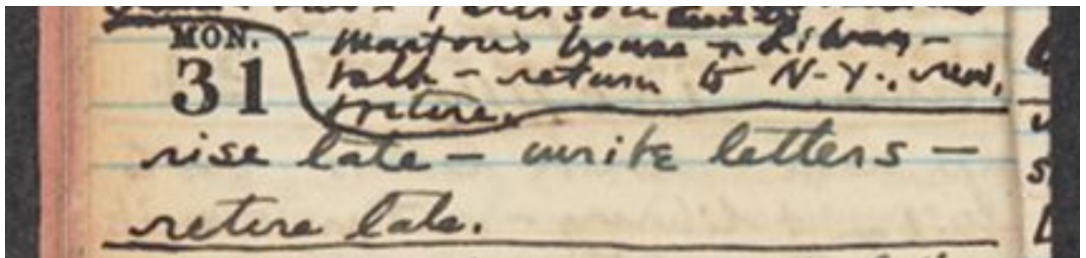 MON. - house + Library -
31 talk - return to N-Y., read,
retire.
rise late - write letters -
retire late.